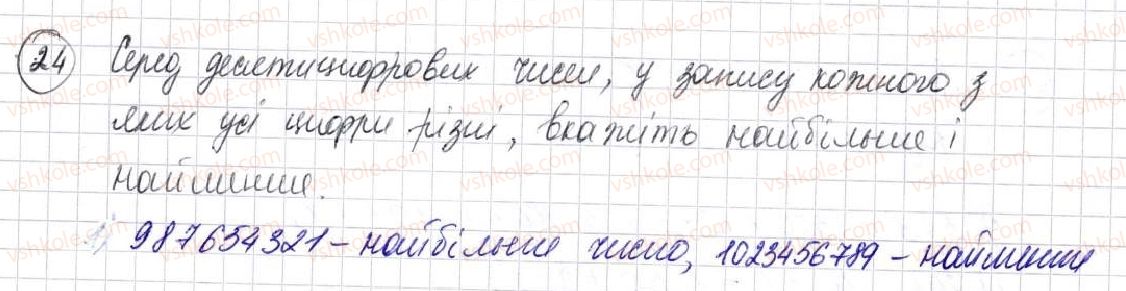 24 Серед десятицифрових чисел, у запису кожного з
яких усі цифри різні, вкажіть найбільше і
найменше.
1) 987654321 – найбільше число, 1023456789 – найменше